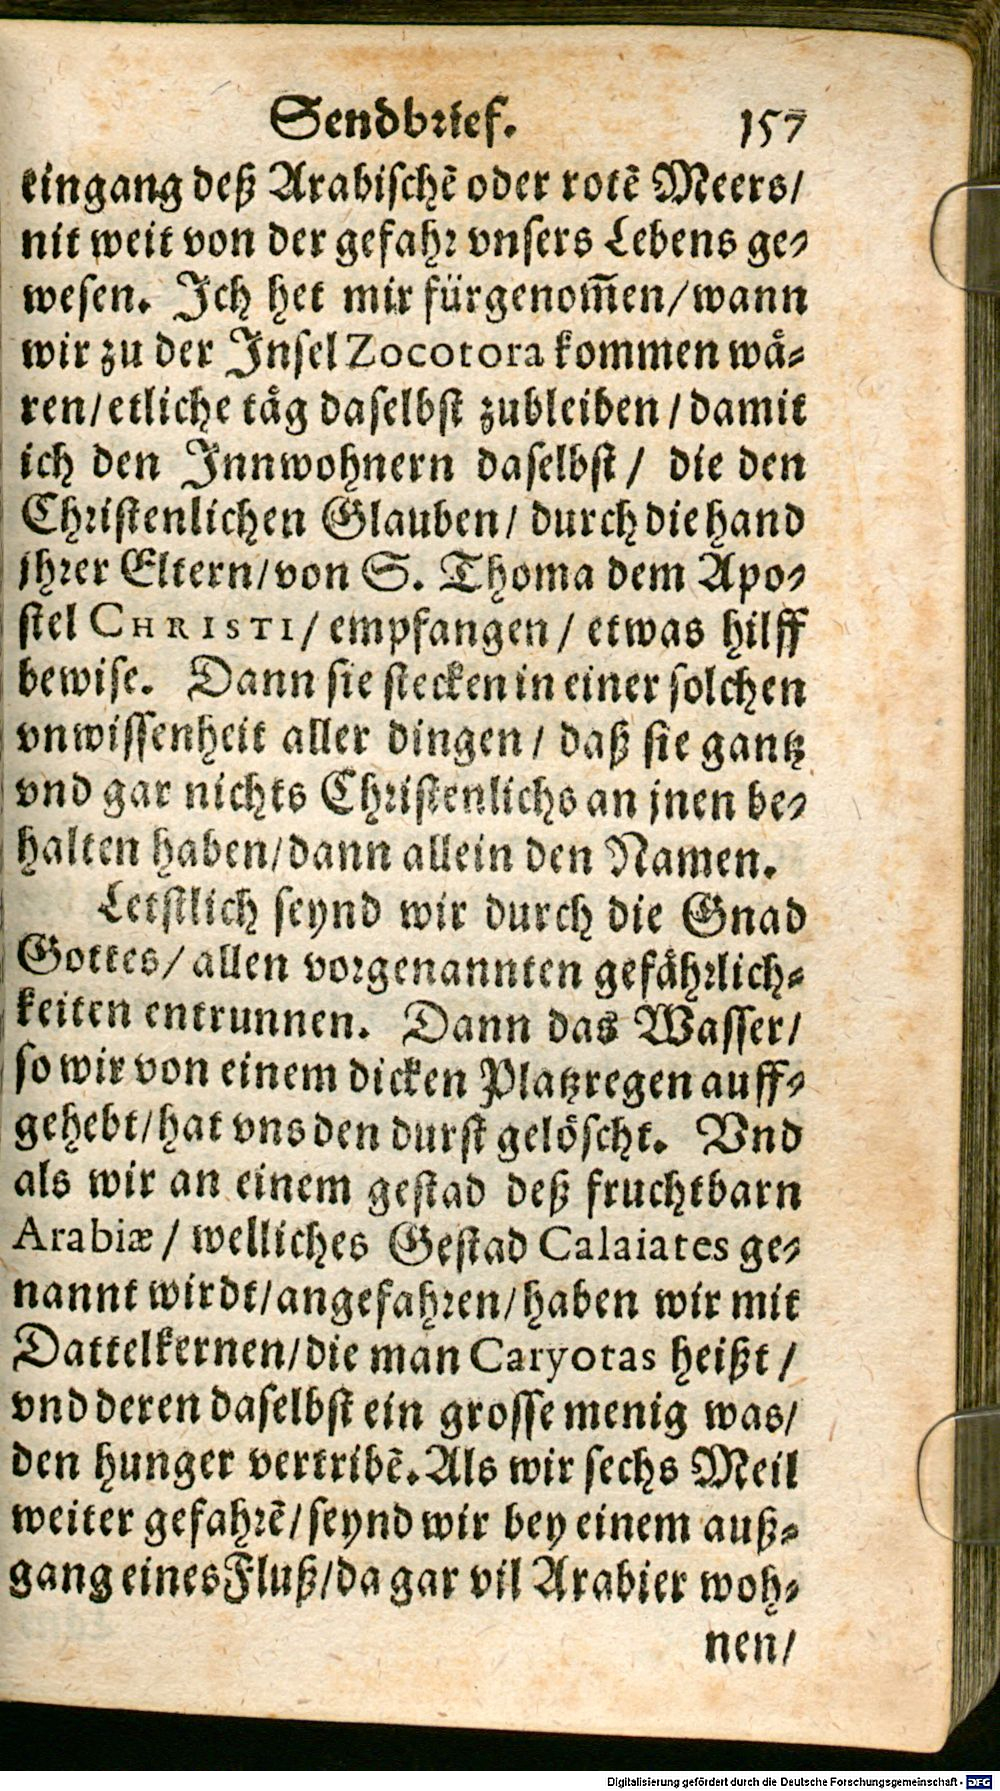 Sendbrief. 157
eingang deß Arabischē oder rotē Meers/
nit weit von der gefahr vnsers Lebens ge-
wesen. Ich het mir fürgenom̄en/wann
wir zu der Insel Zocotora kommen wå-
ren/etliche tåg daselbst zubleiben/damit
ich den Innwohnern daselbst/ die den
Christenlichen Glauben/ durch die hand
jhrer Eltern/von S. Thoma dem Apo-
stel CHRISTI/ empfangen/ etwas hilff
bewise. Dann sie stecken in einer solchen
vnwissenheit aller dingen/ daß sie gantz
vnd gar nichts Christenlichs an jnen be-
halten haben/dann allein den Namen.
Letstlich seynd wir durch die Gnad
Gottes/ allen vorgenannten gefährlich-
keiten entrunnen. Dann das Wasser/
so wir von einem dicken Platzregen auff-
gehebt/hat vns den durst gelöscht. Vnd
als wir an einem gestad deß fruchtbarn
Arabiæ/ welliches Gestad Calaiates ge-
nannt wirdt/angefahren/haben wir mit
Dattelkernen/die man Caryotas heißt/
vnd deren daselbst ein grosse menig was/
den hunger vertribē. Als wir sechs Meil
weiter gefahrē/seynd wir bey einem auß-
gang eines Fluß/da gar vil Arabier woh-
nen/
Digitalisierung gefördert durch die Deutsche Forschungsgemeinschaft - DFG